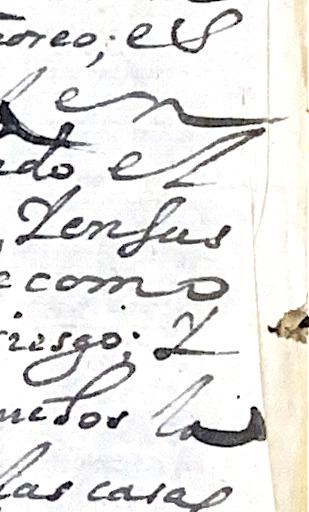 oreo; es
en
do el
Y en sus
e como
riesgo; Y
la
las casas